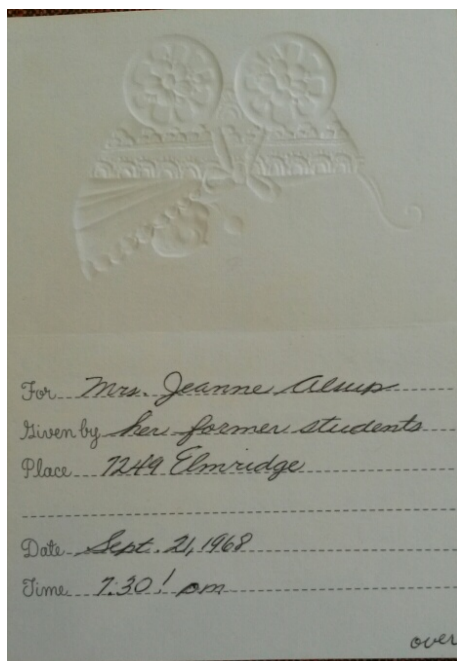 For Mrs. Jeanne Alsup
Given by her former students
Place 7249 Elmridge
Date Sept. 21, 1968
Time 7:30! pm
over